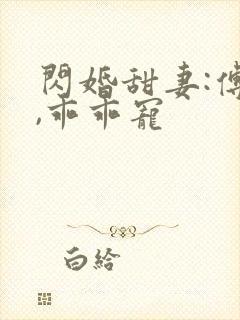 閃婚甜妻:傅
,乖乖寵
白給